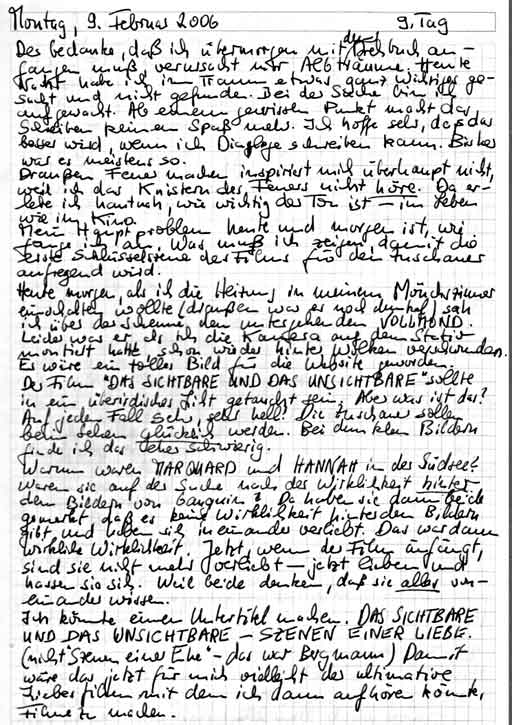 Montag, 9. Februar 2006 9. Tag
Der Gedanke, daß ich übermorgen mit dem Drehbuch an-
fangen muß, verursacht mir Albträume. Heute
Nacht habe ich im Traum etwas ganz wichtiges ge-
sucht und nicht gefunden. Bei der Suche bin ich
aufgewacht. Ab einem gewissen Punkt macht das
Schreiben keinen Spaß mehr. Ich hoffe sehr, dass das
besser wird, wenn ich Dialoge schreiben kann. Bisher
war es meistens so.
Draußen Feuer machen inspiriert mich überhaupt nicht,
weil ich das Knistern des Feuers nicht höre. Da er-
lebe ich hautnah, wie wichtig der Ton ist – im Leben
wie im Kino.
Mein Hauptproblem heute und morgen ist, wie
fange ich an. Was muß ich zeigen, damit die
erste Schlüsselszene des Films für den Zuschauer
aufregend wird.
Heute morgen, als ich die Heizung in meinem Mönchszimmer
einschalten wollte (draußen war es noch dunkel) sah
ich über der Scheune den untergehenden VOLLMOND.
Leider war er, als ich die Kamera auf dem Stativ
montiert hatte, schon wieder hinter Wolken verschwunden.
Es wäre ein tolles Bild für die Website geworden.
Der Film "DAS SICHTBARE UND DAS UNSICHTBARE" sollte
in ein überirdisches Licht getaucht sein. Aber was ist das?
Auf jeden Fall sehr, sehr hell! Die Zuschauer sollen
beim Sehen glücklich werden. Bei dunklen Bildern
finde ich das eher schwierig.
Warum waren MARQUARD und HANNAH in der Südsee?
Waren sie auf der Suche nach der Wirklichkeit hinter
den Bildern von Gauguin? Da haben sie dann beide
gemerkt, daß es keine Wirklichkeit hinter den Bildern
gibt, und haben sich ineinander verliebt. Das war dann
wirkliche Wirklichkeit. Jetzt, wenn der Film anfängt,
sind sie nicht mehr verliebt – jetzt lieben und
hassen sie sich. Weil beide denken, daß sie alles von-
einander wissen.
Ich könnte einen Untertitel machen. DAS SICHTBARE
UND DAS UNSICHTBARE – SZENEN EINER LIEBE.
(nicht "Szenen einer Ehe" – das war Bergmann) Damit
wäre das jetzt für mich vielleicht der ultimative
Liebesfilm mit dem ich dann aufhören könnte,
Filme zu machen.